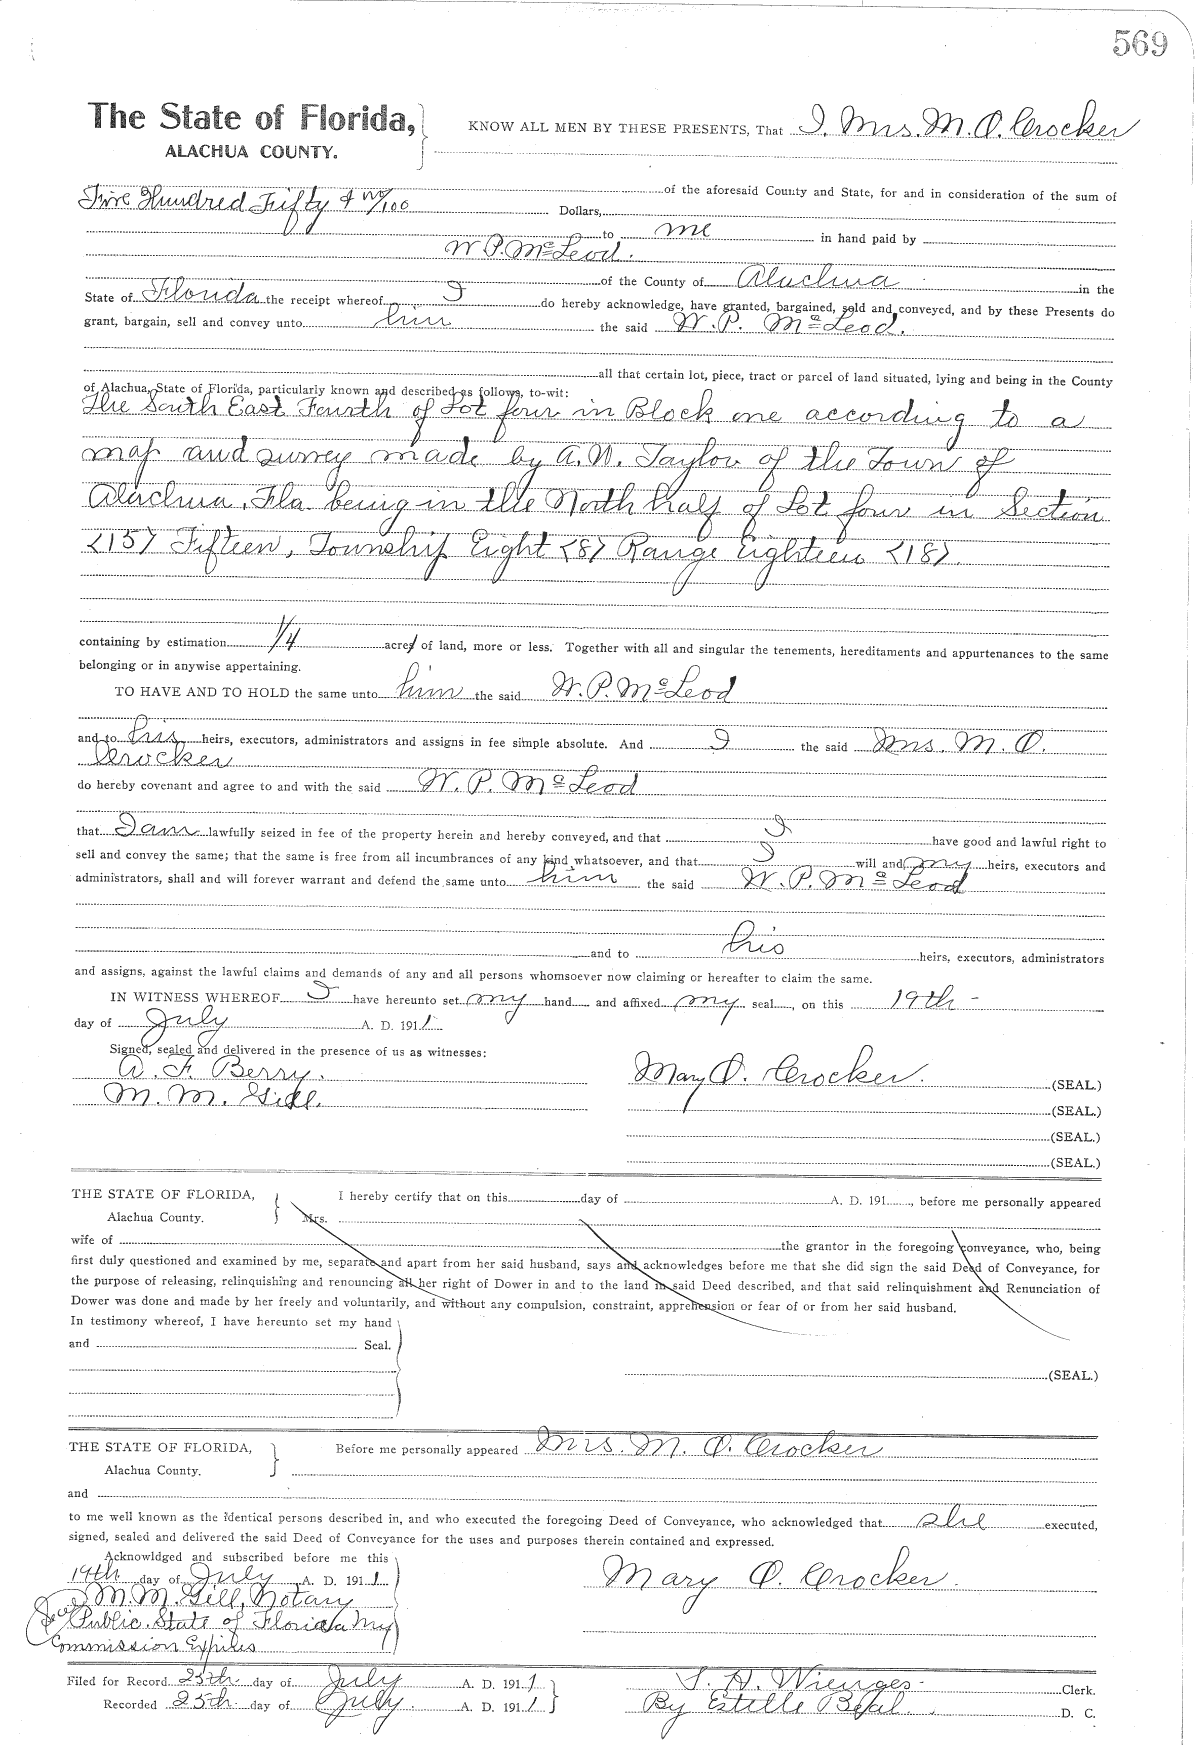 569
The State of Florida,
ALACHUA COUNTY.
KNOW ALL MEN BY THESE PRESENTS, That I, Mrs. M. O. Crocker
of the aforesaid County and State, for and in consideration of the sum of
Five Hundred Fifty & no/100 Dollars,
to me in hand paid by
W. P. McLeod.
of the County of Alachua in the
State of Florida the receipt whereof I do hereby acknowledge, have granted, bargained, sold and conveyed, and by these Presents do
grant, bargain, sell and convey unto him the said W. P. McLeod.
all that certain lot, piece, tract or parcel of land situated, lying and being in the County
of Alachua, State of Florida, particularly known and described as follows, to-wit:
The South East Fourth of Lot four in Block one according to a
map and survey made by A. N. Taylor of the Town of
Alachua, Fla. being in the North half of Lot four in Section
<15> Fifteen, Township Eight <8> Range Eighteen <18>.
containing by estimation 1/4 acre of land, more or less. Together with all and singular the tenements, hereditaments and appurtenances to the same
belonging or in anywise appertaining.
TO HAVE AND TO HOLD the same unto him the said W. P. McLeod
and to his heirs, executors, administrators and assigns in fee simple absolute. And I the said Mrs. M. O.
Crocker
do hereby covenant and agree to and with the said W. P. McLeod
that I am lawfully seized in fee of the property herein and hereby conveyed, and that I have good and lawful right to
sell and convey the same; that the same is free from all incumbrances of any kind whatsoever, and that I will and my heirs, executors and
administrators, shall and will forever warrant and defend the same unto him the said W. P. McLeod
and to his heirs, executors, administrators
and assigns, against the lawful claims and demands of any and all persons whomsoever now claiming or hereafter to claim the same.
IN WITNESS WHEREOF I have hereunto set my hand and affixed my seal, on this 19th -
day of July A. D. 1911.
Signed, sealed and delivered in the presence of us as witnesses:
A. F. Berry.
Mary O. Crocker. (SEAL.)
M. M. Gill.
(SEAL.)
(SEAL.)
(SEAL.)
THE STATE OF FLORIDA,
Alachua County.
I hereby certify that on this day of A. D. 191 , before me personally appeared
Mrs.
wife of the grantor in the foregoing conveyance, who, being
first duly questioned and examined by me, separate and apart from her said husband, says and acknowledges before me that she did sign the said Deed of Conveyance, for
the purpose of releasing, relinquishing and renouncing all her right of Dower in and to the land in said Deed described, and that said relinquishment and Renunciation of
Dower was done and made by her freely and voluntarily, and without any compulsion, constraint, apprehension or fear of or from her said husband.
In testimony whereof, I have hereunto set my hand
and Seal.
(SEAL.)
THE STATE OF FLORIDA,
Alachua County.
Before me personally appeared Mrs. M. O. Crocker
and
to me well known as the identical persons described in, and who executed the foregoing Deed of Conveyance, who acknowledged that she executed,
signed, sealed and delivered the said Deed of Conveyance for the uses and purposes therein contained and expressed.
Acknowldged and subscribed before me this
19th day of July A. D. 1911.
Mary O. Crocker.
M. M. Gill, Notary
Seal Public. State of Florida My
Commission Expires
Filed for Record 25th day of July A. D. 1911
S. H. Wienges. Clerk.
Recorded 25th day of July. A. D. 1911
By Estelle D. C.